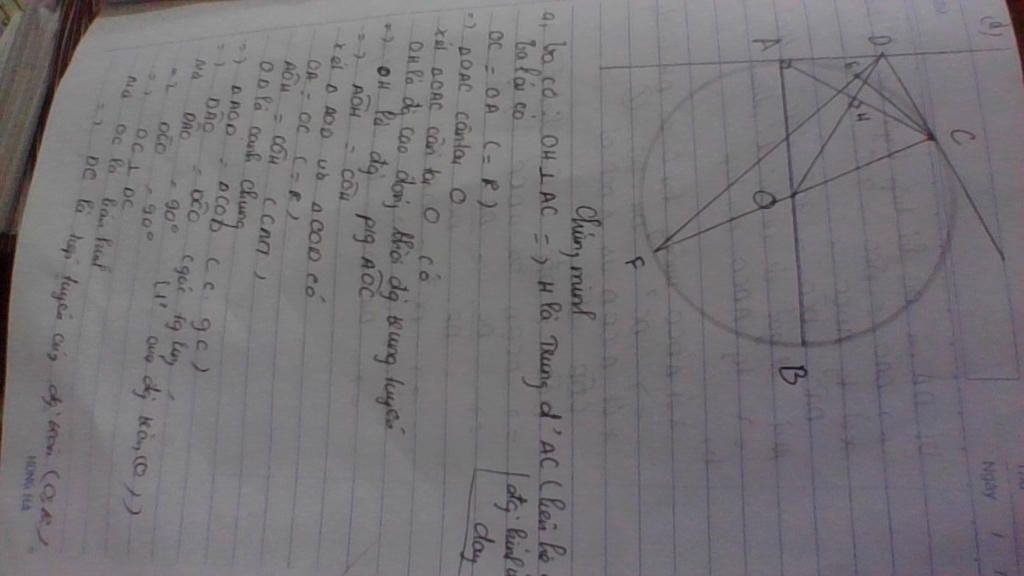 (d)
D
A
E
H
C
O
F
B
Ngày
Chứng minh
a, Ta có: OH ⊥ AC => H là trung đ' AC (liên hệ
đg kính
dây
Ta lại có
OC = OA (= R)
=> ΔOAC cân tại O
xét ΔOAC cân tại O có
OH là đg cao đồng thời đg trung tuyến
=> OH là đg p/g AÔC
=> AÔH = CÔH
xét ΔAOD và ΔCOD có
OA = OC (= R)
AÔH = CÔH (CMT)
OD là cạnh chung
=> ΔAOD = ΔCOD (c.g.c)
=> DÂO = DĈO (góc tg ứng)
mà DÂO = 90°
=> DĈO = 90°
=> OC ⊥ DC
mà OC là bán kính
=> DC là tiếp tuyến của đg tròn (O;R)
HONG HA